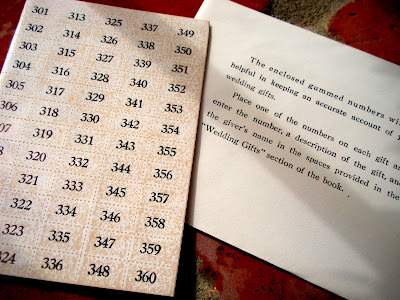 301 313 325 337 349
302 314 326 338 350
303 315 327 339 351
304 316 328 340 352
305 317 329 341 353
306 318 330 342 354
07 319 331 343 355
8 320 332 344 356
321 333 345 357
322 334 346 358
323 335 347 359
24 336 348 360
The enclosed gummed numbers wil
helpful in keeping an accurate account of
wedding gifts.
Place one of the numbers on each gift an
enter the number, a description of the gift, an
the giver's name in the spaces provided in the
"Wedding Gifts" section of the book.